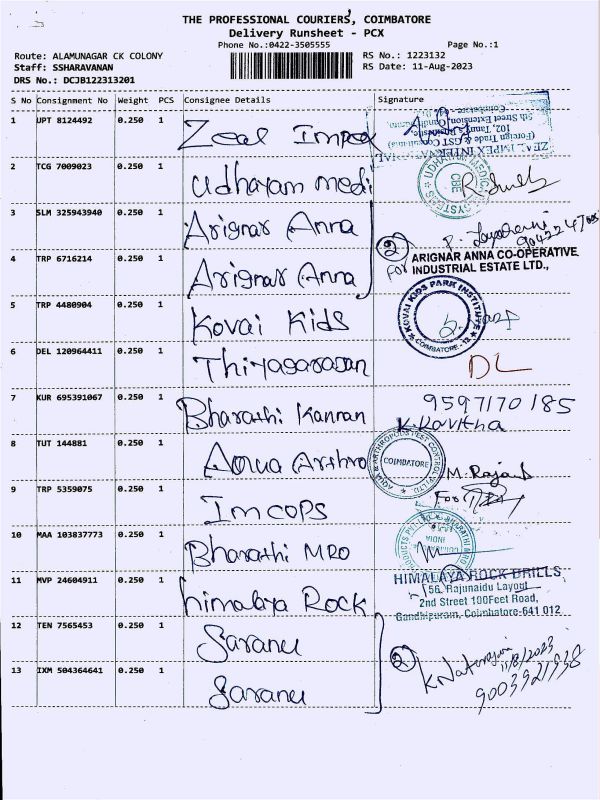 THE PROFESSIONAL COURIERS, COIMBATORE
Delivery Runsheet - PCX
Phone No.:0422-3505555
Page No.:1
Route: ALAMUNAGAR CK COLONY
RS No.: 1223132
Staff: SSHARAVANAN
RS Date: 11-Aug-2023
DRS No.: DCJB122313201
S No Consignment No Weight PCS Consignee Details Signature
1 UPT 8124492 0.250 1 Zeal Impex
ZEAL IMPEX INTERNATIONAL
(Foreign Trade & GST Consultants)
5th Street Extension, Gandhipuram
Coimbatore
2 TCG 7009023 0.250 1 Udhayam medi
UDHAYAM MEDICAL SYSTEMS
CBE
3 SLM 325943940 0.250 1 Arignar Anna
4 TRP 6716214 0.250 1 Arignar Anna
2
For ARIGNAR ANNA CO-OPERATIVE
INDUSTRIAL ESTATE LTD.,
5 TRP 4480904 0.250 1 Kovai Kids
KOVAI KIDS PARK INSTITUTE
COIMBATORE - 12
6 DEL 120964411 0.250 1 Thiyagarasan
DL
7 KUR 695391067 0.250 1 Bharathi Kannan 9597170185
K. Kavitha
8 TUT 144881 0.250 1 Aqua Arthro
AQUA & ARTHROPODS PEST CONTROL (P) LTD
COIMBATORE
M. Rajan
9 TRP 5359075 0.250 1 Imcops
For
10 MAA 103837773 0.250 1 Bharathi MRO
11 MVP 24604911 0.250 1 himalaya Rock
HIMALAYA ROCK DRILLS
56, Rajunaidu Layout
2nd Street 100Feet Road,
Gandhipuram, Coimbatore-641 012
12 TEN 7565453 0.250 1 Saranu
13 IXM 504364641 0.250 1 Saranu
2
K. Natarajan
11/8/2023
9003921938